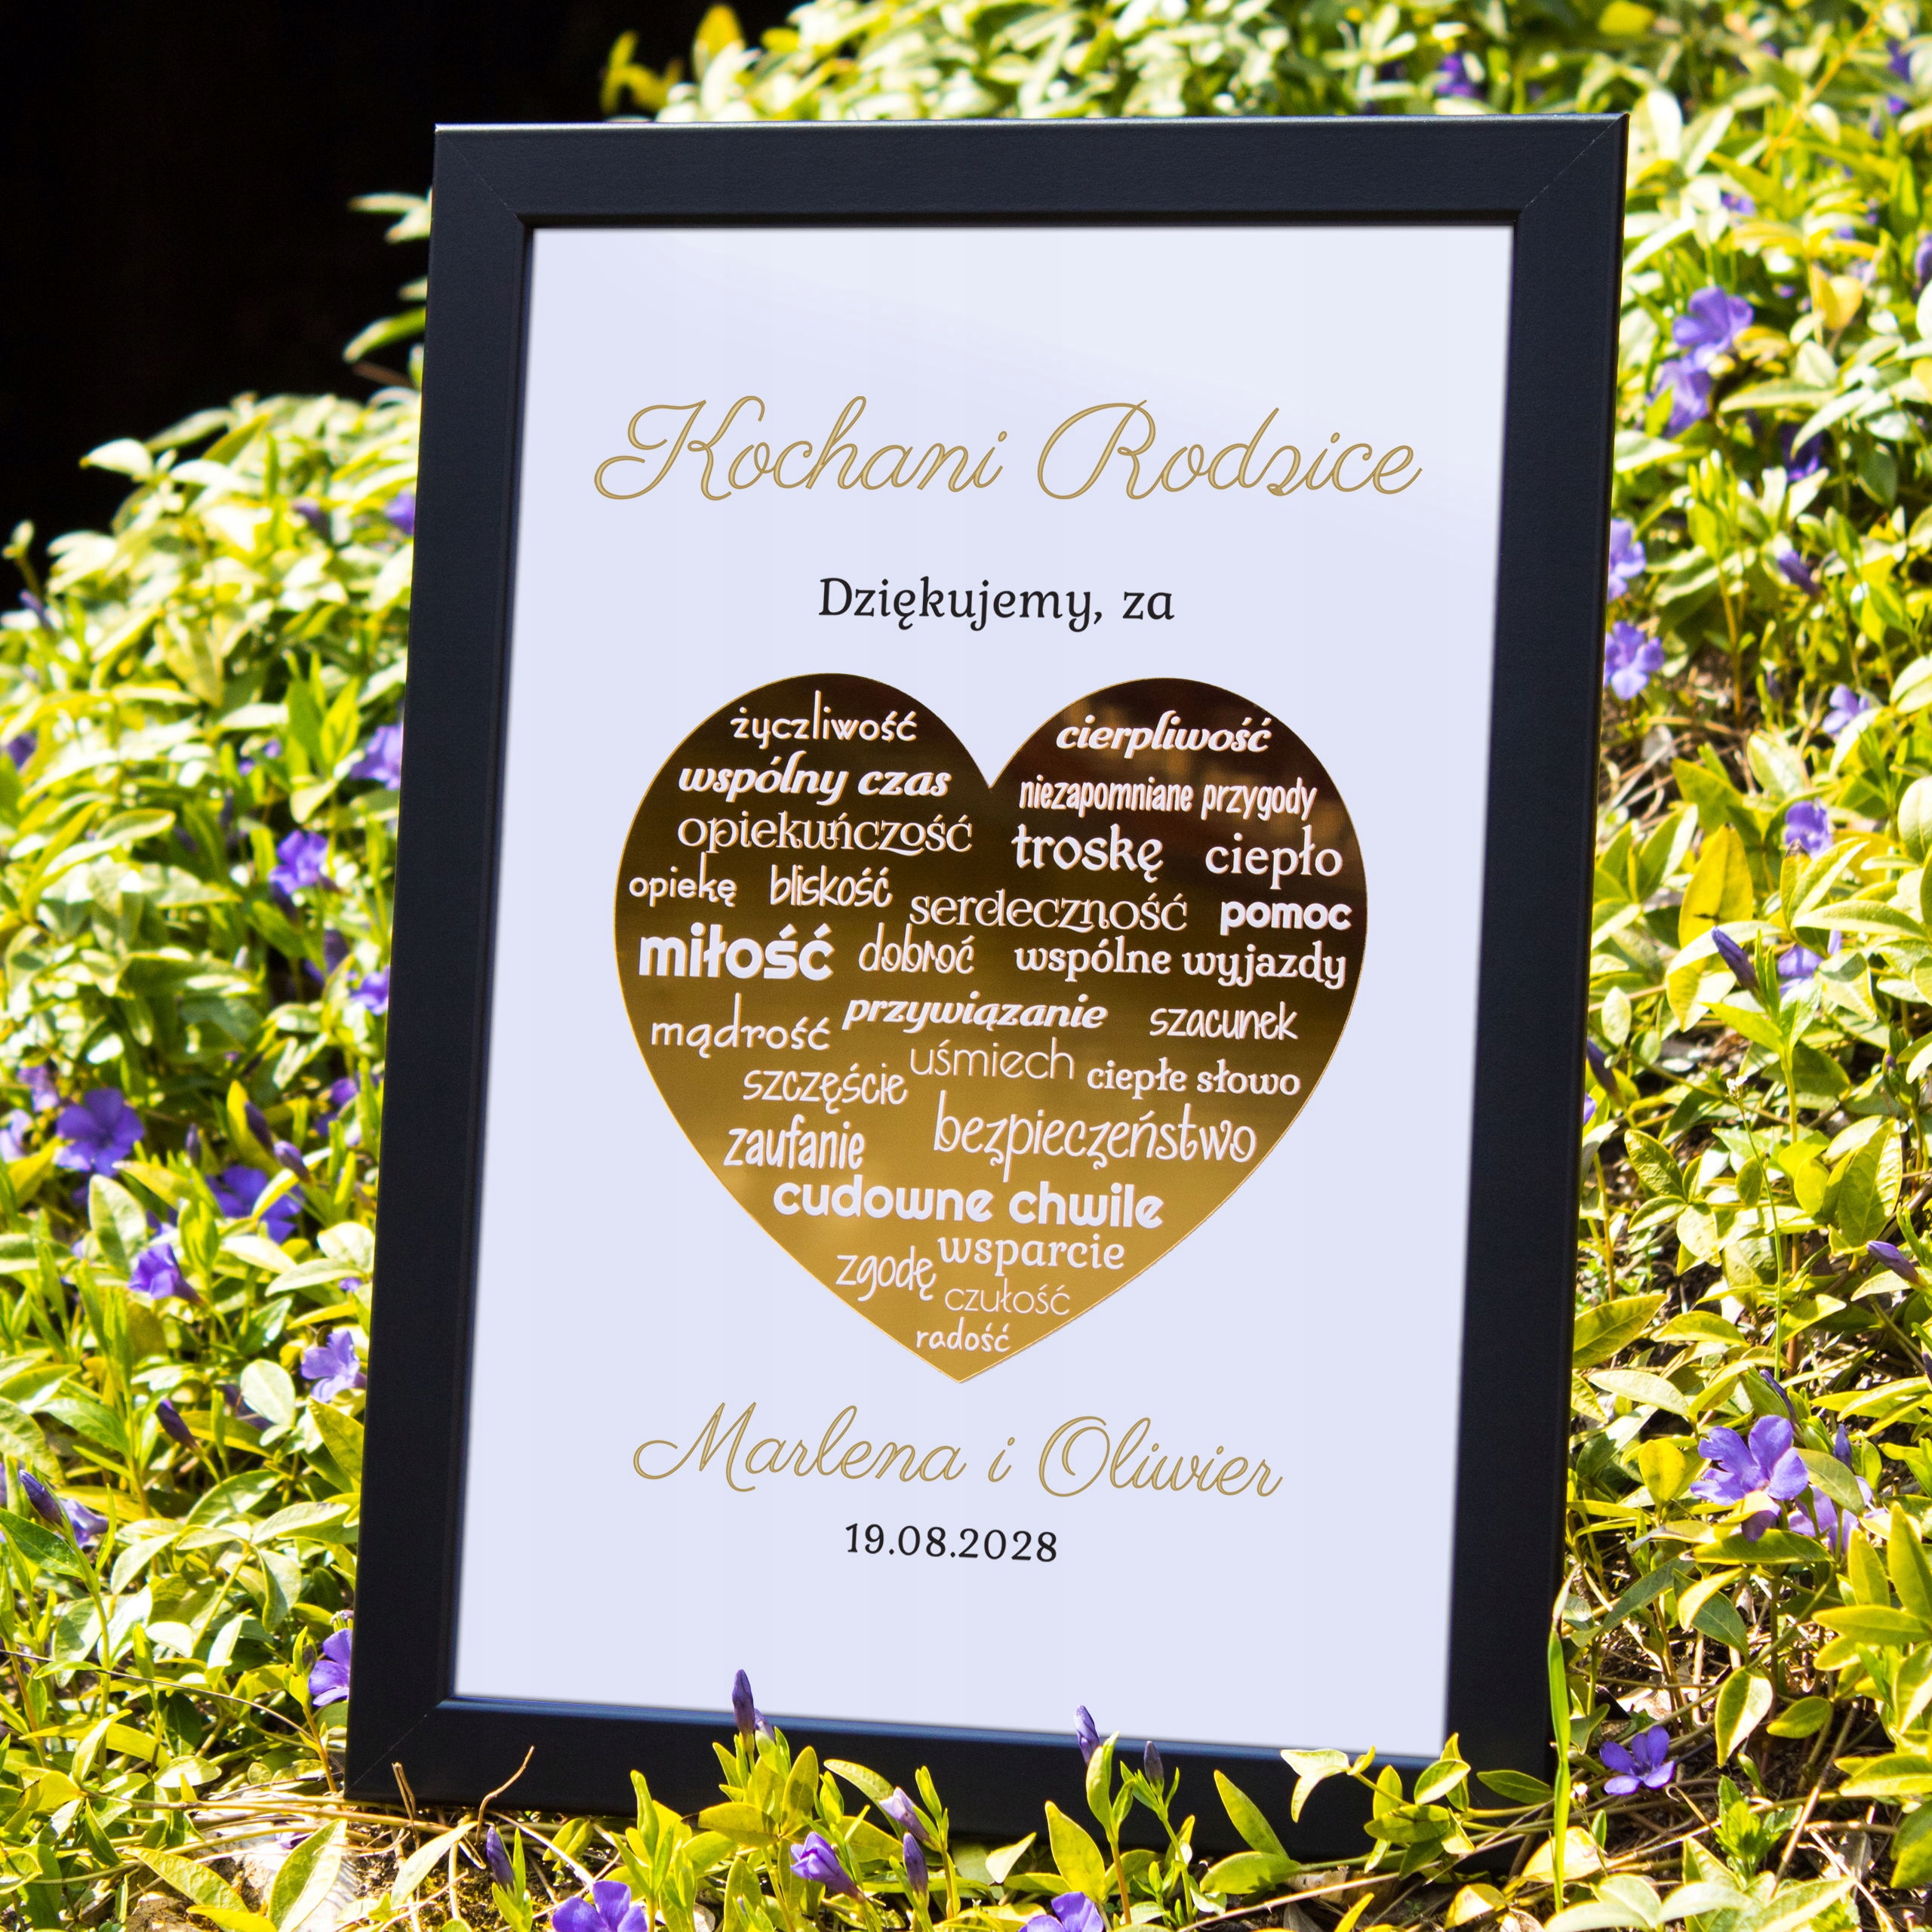 Kochani Rodzice
Dziękujemy, za
życzliwość
cierpliwość
wspólny czas
niezapomniane przygody
opiekuńczość
troskę ciepło
opiekę bliskość serdeczność pomoc
miłość dobroć wspólne wyjazdy
mądrość przywiązanie szacunek
szczęście uśmiech ciepłe słowo
zaufanie bezpieczeństwo
cudowne chwile
zgodę wsparcie
czułość
radość
Marlena i Oliwier
19.08.2028